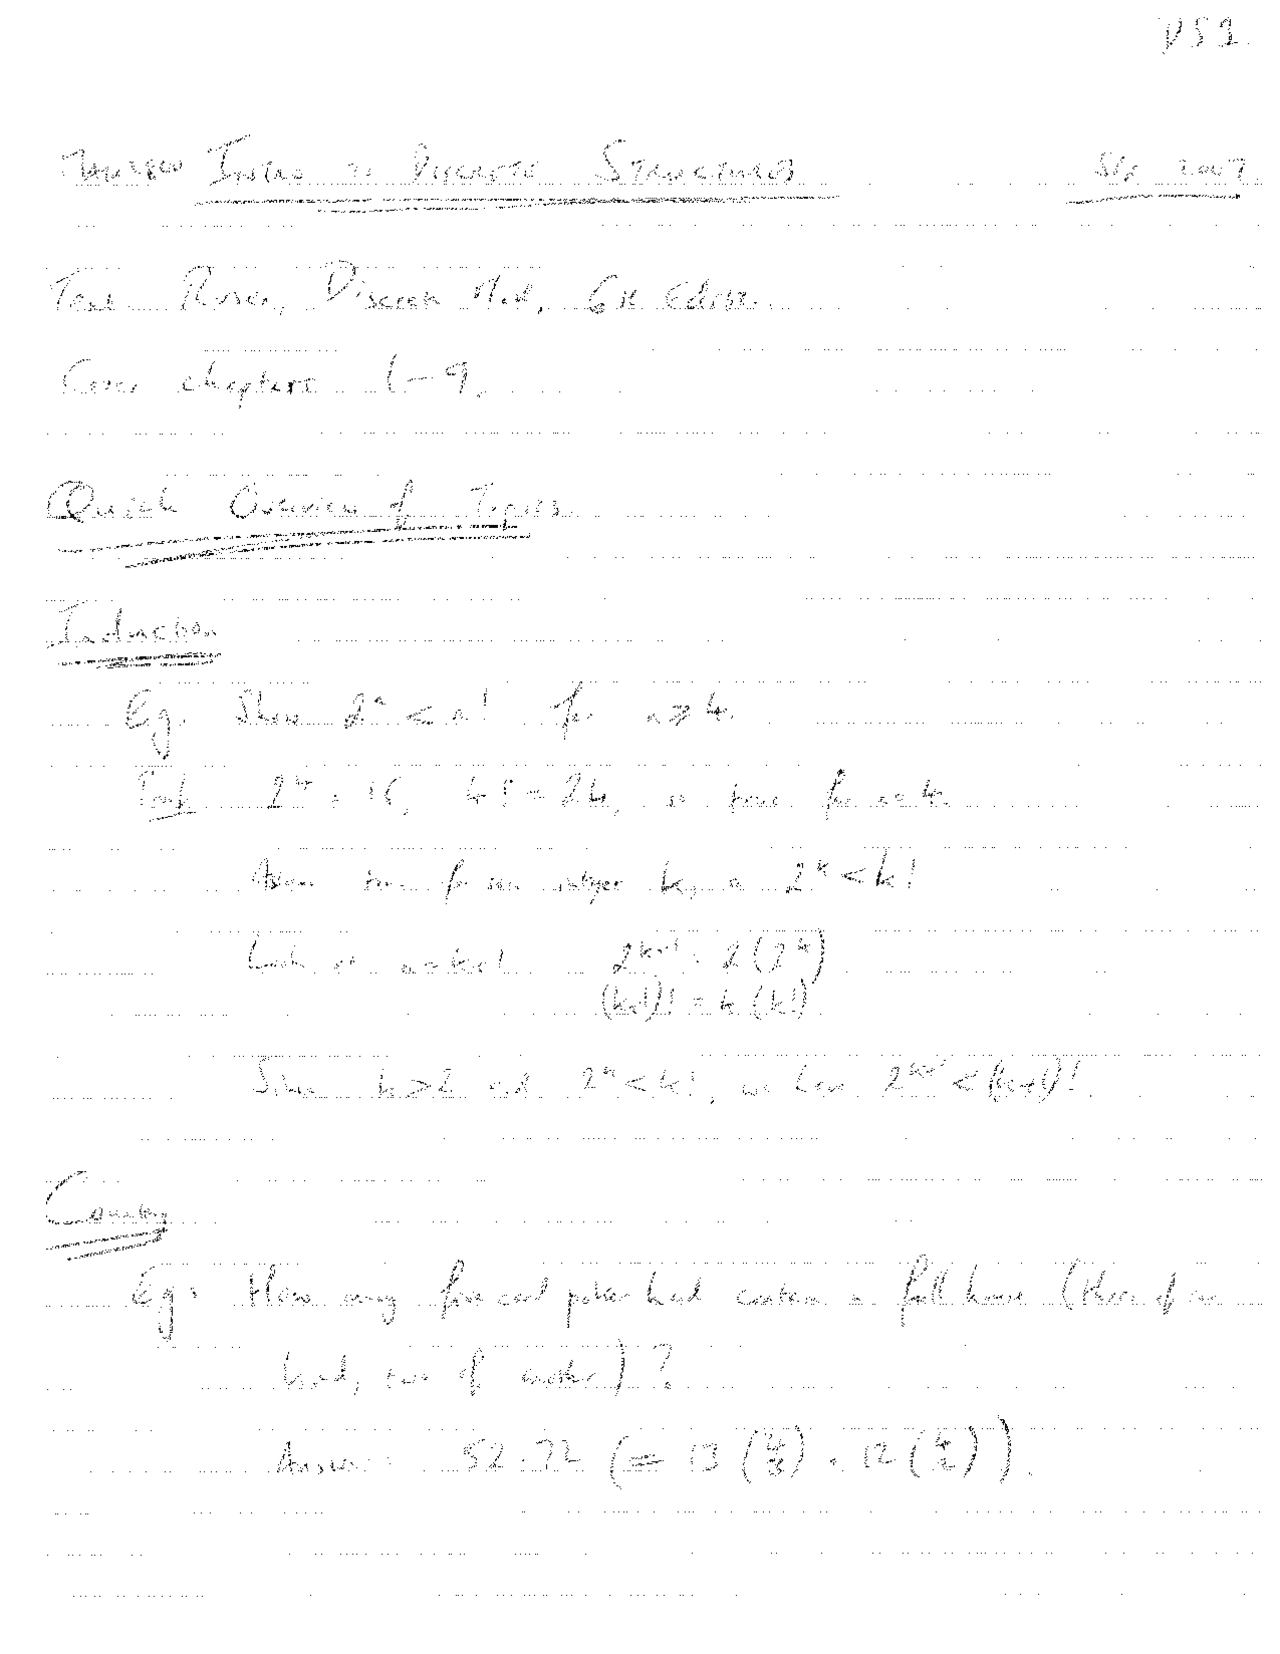 DS 1
Intro to Discrete Structures Sep 2007
Text Rosen, Discrete Math, 6th Edition.
Cover chapters 1-9.
Quick Overview of Topics
Induction
Eg. Show 2ⁿ < n! for n ≥ 4.
Proof 2⁴ = 16, 4! = 24, so true for n=4.
Assume true for some integer k, so 2ᵏ < k!
Look at n=k+1 2ᵏ⁺¹ = 2(2ᵏ)
(k+1)! = k (k!)
Since k>2 and 2ᵏ < k!, we have 2ᵏ⁺¹ < (k+1)!
Counting
Eg: How many five card poker hand contain a full house (three of one
kind, two of another)?
Answer: 52·72 (= 13 (4 3) · 12 (4 2)).